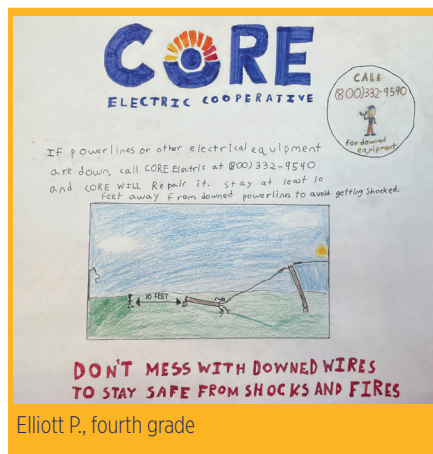 CORE
ELECTRIC COOPERATIVE
CALL
(800)332-9590
for downed
equipment
If powerlines or other electrical equipment
are down, call CORE Electric at (800)332-9540
and CORE WILL Repair it. stay at least 10
feet away from downed powerlin to avoid getting shocked.
10 FEET
DON'T MESS WITH DOWNED WIRES
TO STAY SAFE FROM SHOCKS AND FIRES
Elliott P., fourth grade